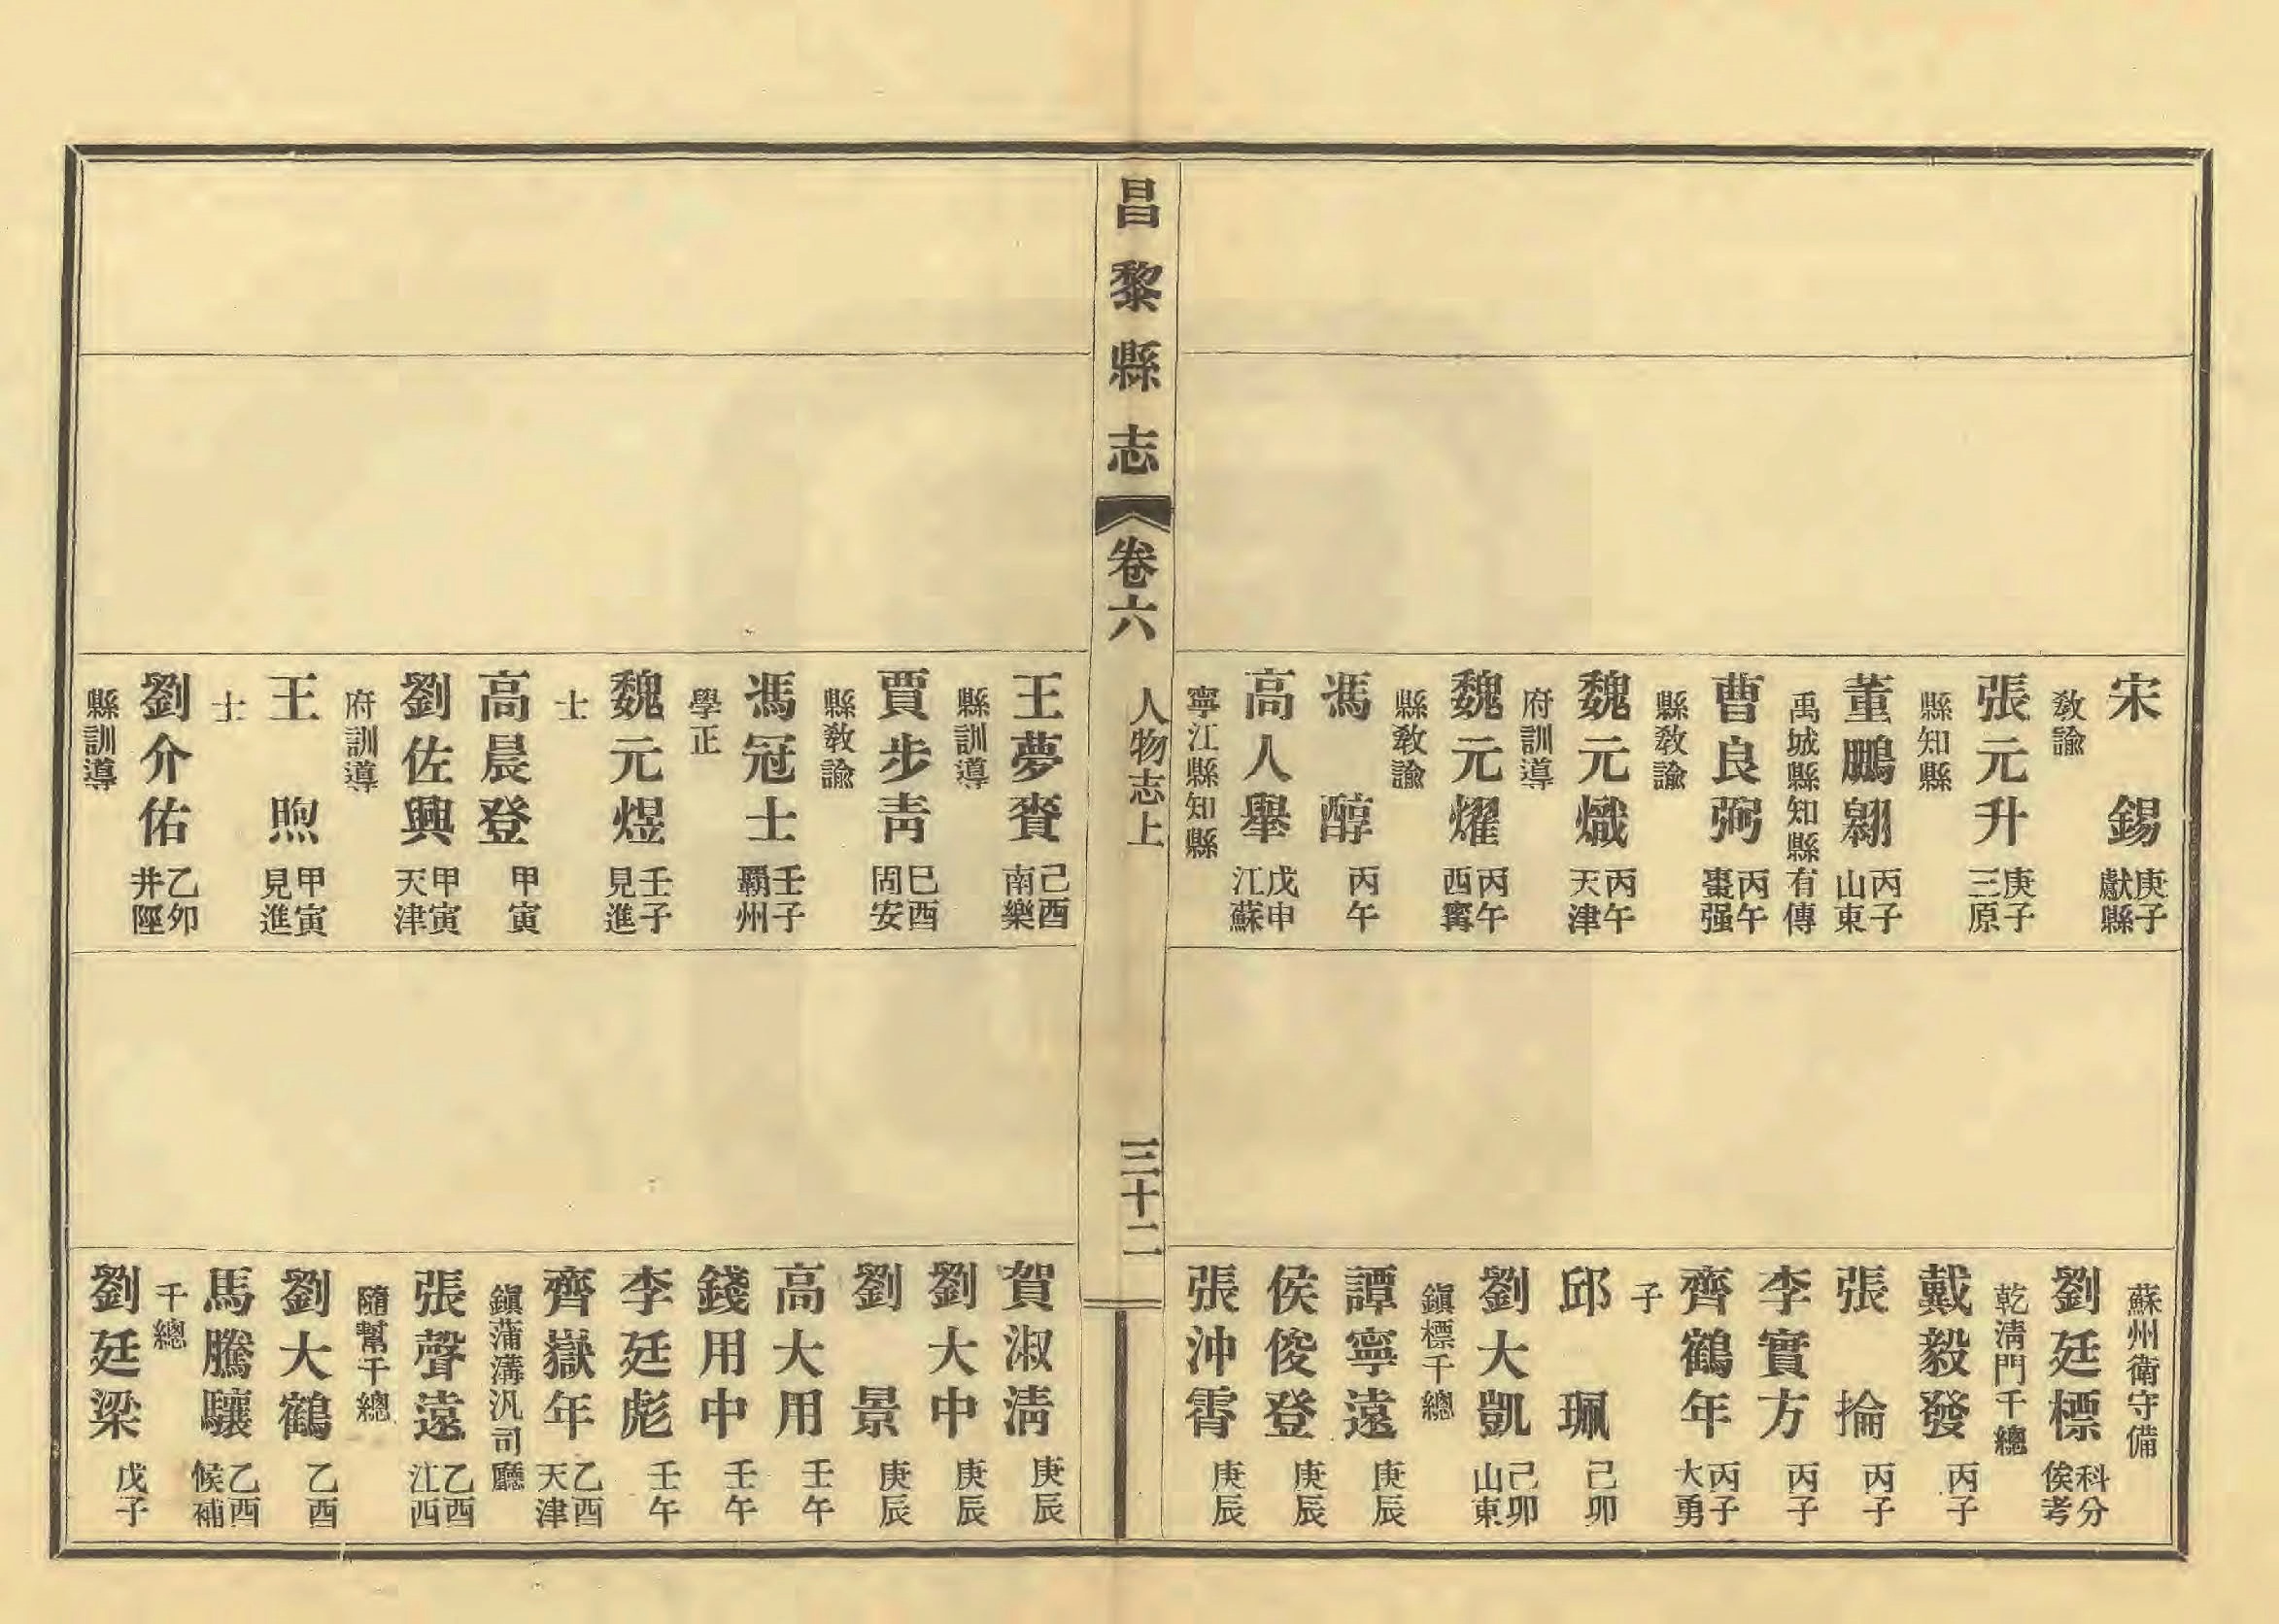 宋錫 庚子獻縣
教諭
張元升 庚子三原
縣知縣
董鵬翱 丙子山東
禹城縣知縣有傳
曹良弼 丙午棗强
縣教諭
魏元熾 丙午天津
府訓導
魏元燿 丙午西寗
縣教諭
馮醇 丙午
高人舉 戊申江蘇
寧江縣知縣
蘇州衛守備
劉廷標 科分俟考
乾淸門千總
戴毅發 丙子
張掄 丙子
李實方 丙子
齊鶴年 丙子大勇
子
邱珮 己卯
劉大凱 己卯山東
鎭標千總
譚寧遠 庚辰
侯俊登 庚辰
張沖霄 庚辰
昌黎縣志 卷六 人物志上 三十二
王夢賚 己酉南樂
縣訓導
賈步靑 巳酉固安
縣教諭
馮冠士 壬子霸州
學正
魏元煜 壬子見進
士
高晨登 甲寅
劉佐興 甲寅天津
府訓導
王煦 甲寅見進
士
劉介佑 乙夘井陘
縣訓導
賀淑淸 庚辰
劉大中 庚辰
劉景 庚辰
高大用 壬午
錢用中 壬午
李廷彪 壬午
齊嶽年 乙酉天津
鎭蒲溝汎司廳
張聲遠 乙酉江西
隨幫千總
劉大鶴 乙酉
馬騰驤 乙酉候補
千總
劉廷梁 戊子